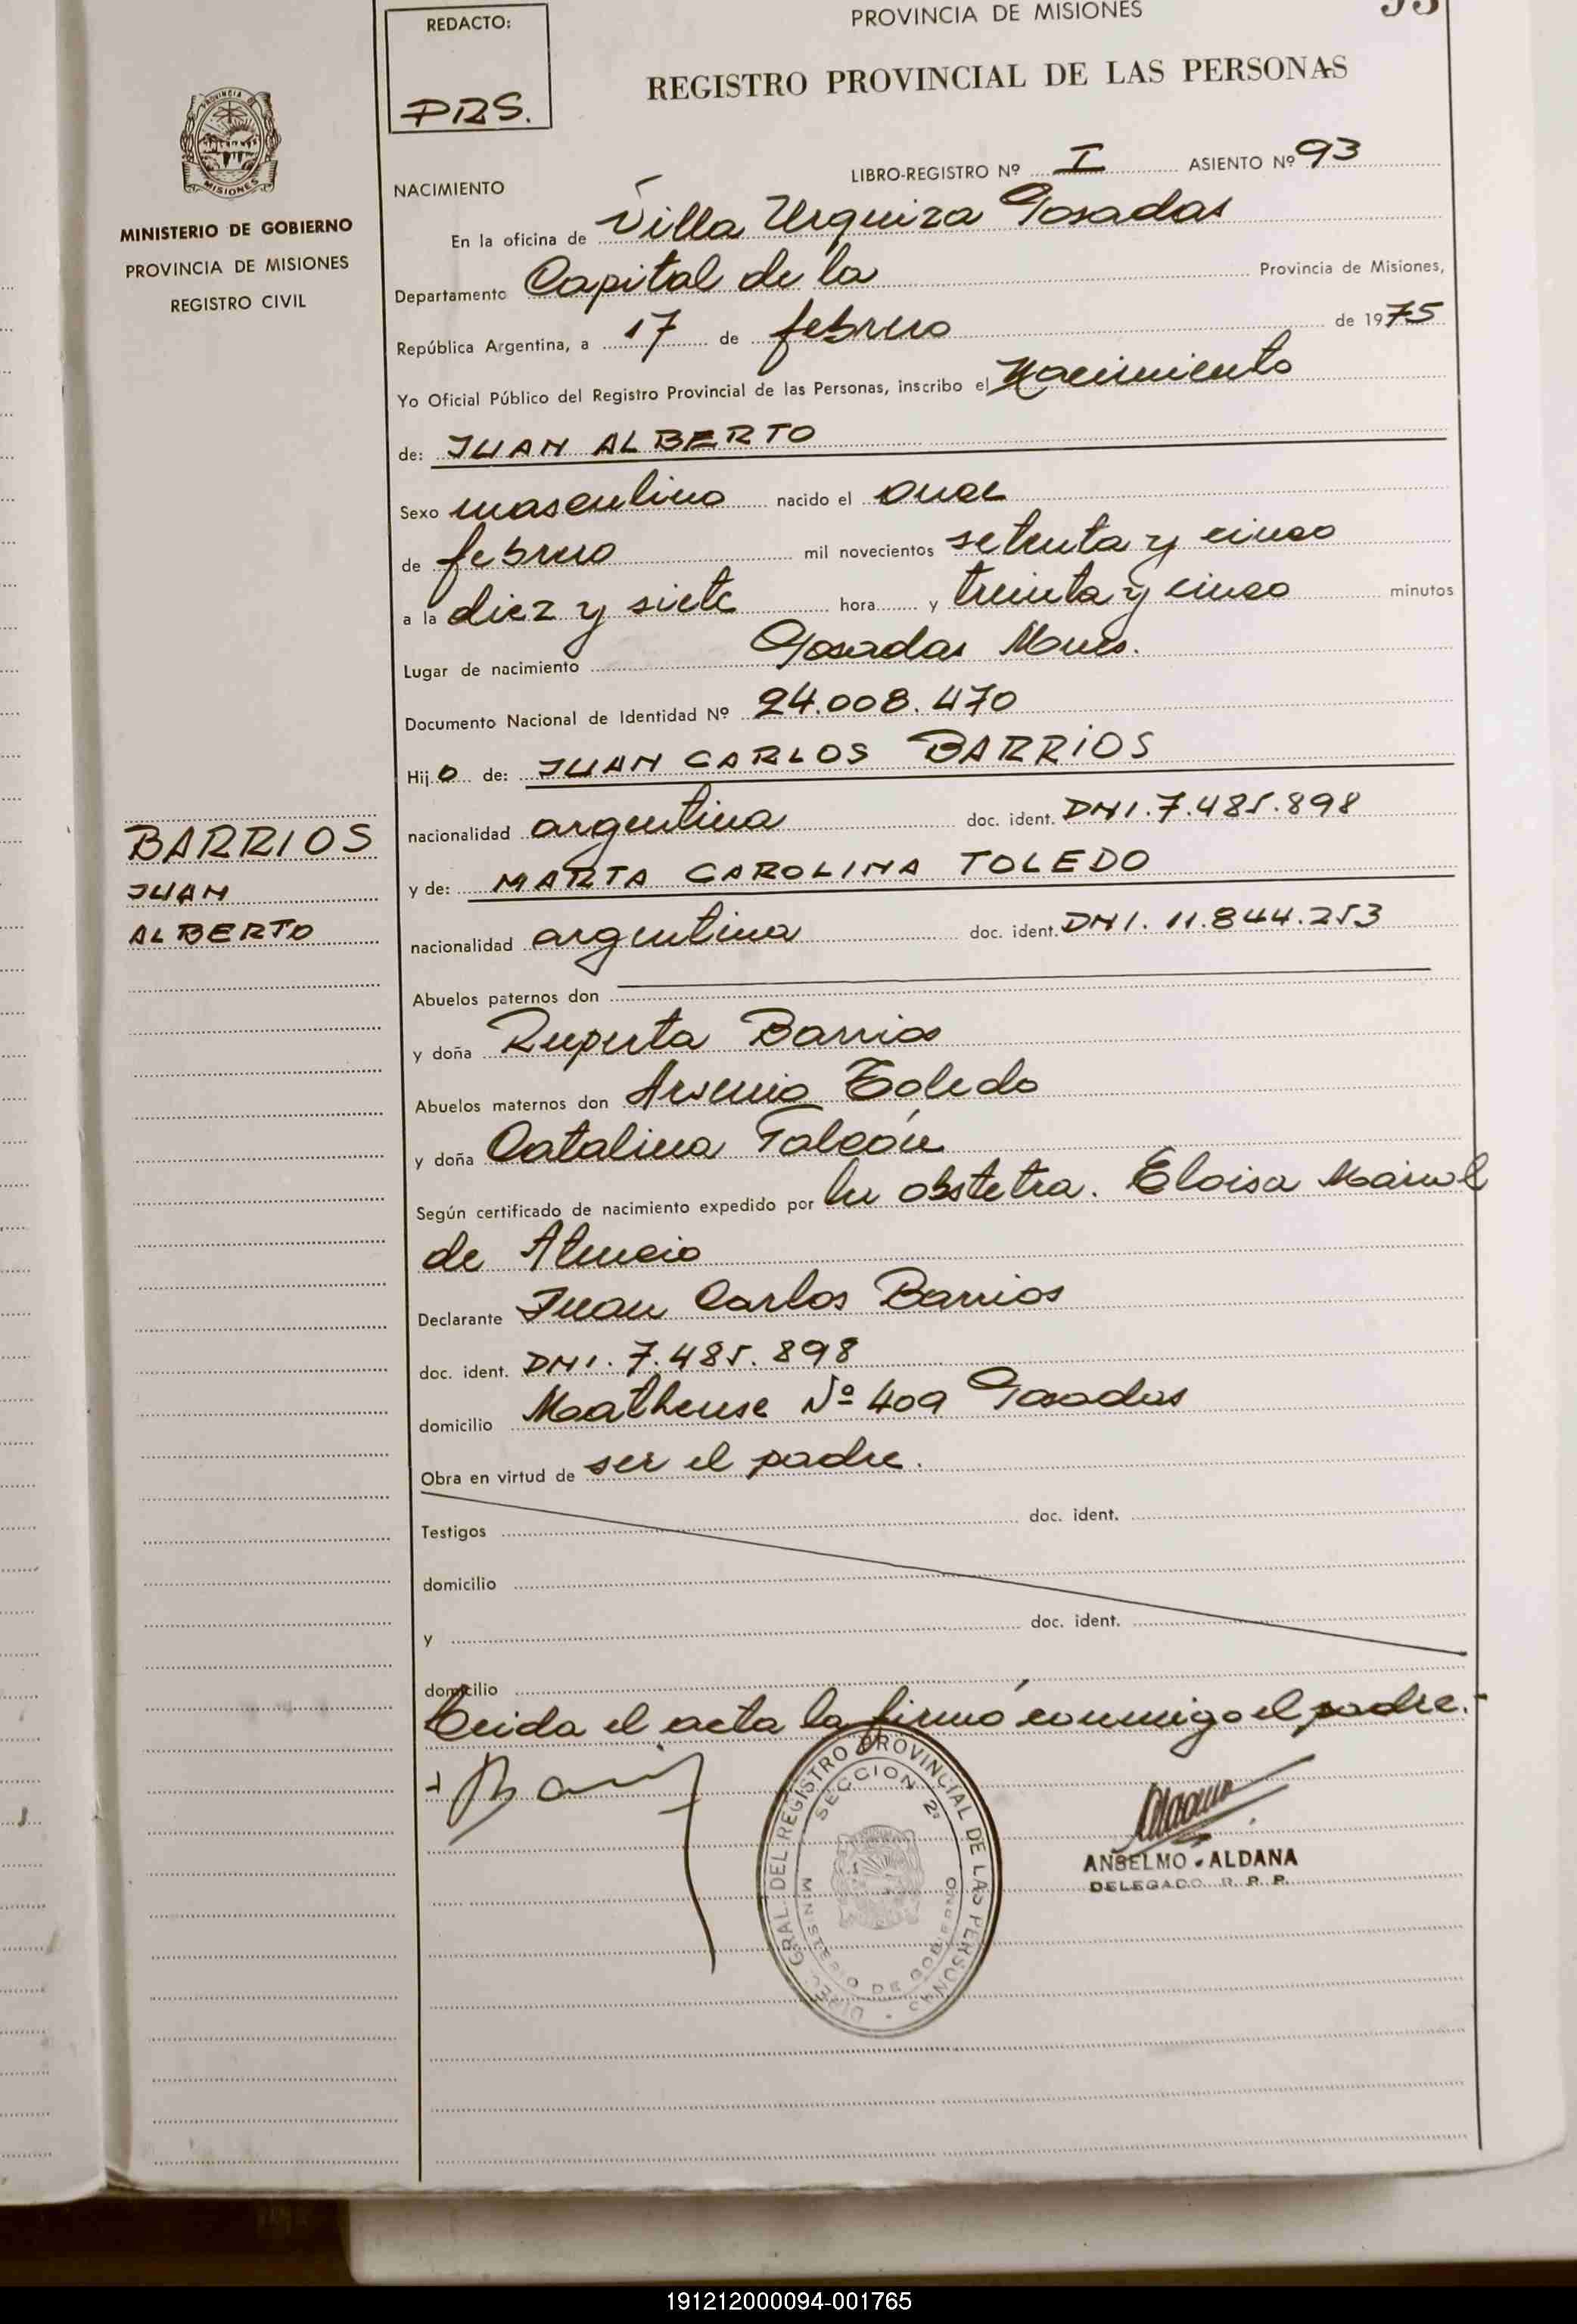 REDACTO:
PRS.
PROVINCIA DE MISIONES
REGISTRO PROVINCIAL DE LAS PERSONAS
PROVINCIA DE
MISIONES
MINISTERIO DE GOBIERNO
PROVINCIA DE MISIONES
REGISTRO CIVIL
LIBRO-REGISTRO Nº I ASIENTO Nº 93
NACIMIENTO
En la oficina de Villa Urquiza Posadas
Departamento Capital de la Provincia de Misiones,
República Argentina, a 17 de febrero de 1975
Yo Oficial Público del Registro Provincial de las Personas, inscribo el Nacimiento
de: JUAN ALBERTO
Sexo masculino nacido el once
de febrero mil novecientos setenta y cinco
a la diez y siete hora y treinta y cinco minutos
Lugar de nacimiento Posadas Mnes.
Documento Nacional de Identidad Nº 24.008.470
Hijo de: JUAN CARLOS BARRIOS
nacionalidad argentina doc. ident. DNI. 7.485.898
BARRIOS
JUAN
ALBERTO
y de: MARTA CAROLINA TOLEDO
nacionalidad argentina doc. ident. DNI. 11.844.253
Abuelos paternos don
y doña Ruperta Barrios
Abuelos maternos don Arsenio Toledo
y doña Catalina Falcón
Según certificado de nacimiento expedido por la obstetra. Eloisa
de Atencio
Declarante Juan Carlos Barrios
doc. ident. DNI. 7.485.898
domicilio Matheuse Nº 409 Posadas
Obra en virtud de ser el padre.
Testigos doc. ident.
domicilio
y doc. ident.
domicilio
Leida el acta la firmó conmigo el padre.-
DIREC. GRAL. DEL REGISTRO PROVINCIAL DE LAS PERSONAS
SECCION 2ª
MINISTERIO DE GOBIERNO
ANSELMO ALDANA
DELEGADO R. P. P.
191212000094-001765